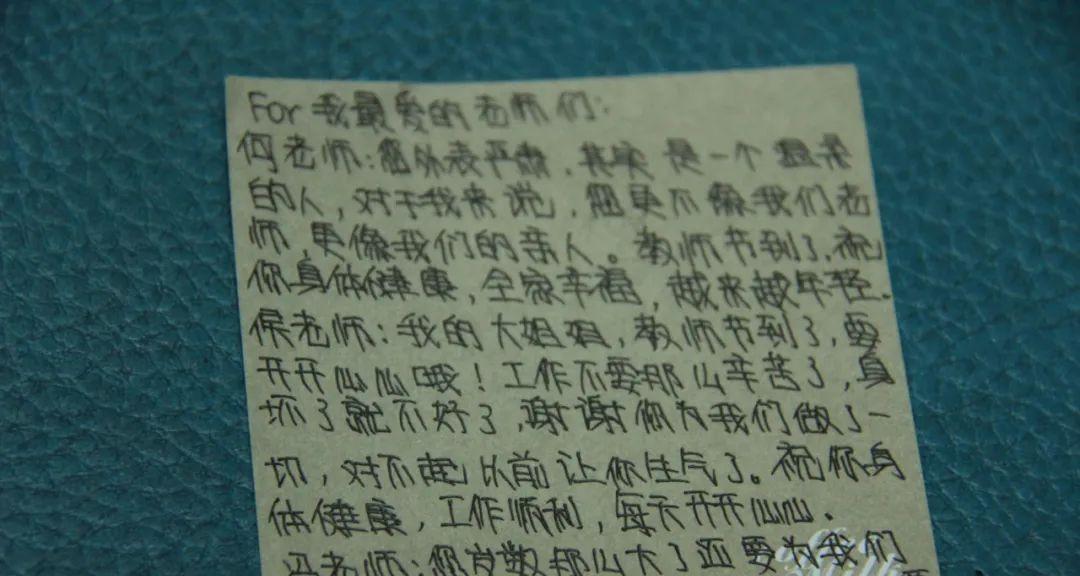 For 我最爱的老师们:
何老师:您外表严肃,其实是一个温柔
的人,对于我来说,您更不像我们老
师,更像我们的亲人。教师节到了,祝
你身体健康,全家幸福,越来越年轻.
侯老师:我的大姐姐,教师节到了,要
开开心心哦!工作不要那么辛苦了,身
坏了就不好了,谢谢你为我们做了一
切,对不起以前让你生气了。祝你身
体健康,工作顺利,每天开开心心.
冯老师:您岁数那么大了还要为我们